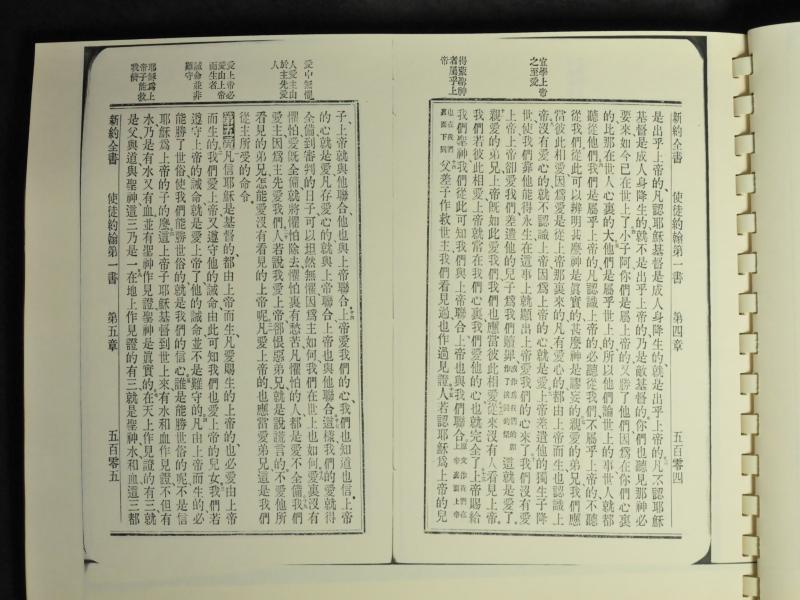 新約全書 使徒約翰第一書 第四章 五百零四
宣學上帝
之至愛
得蒙聖神
者屬乎上
帝
是出乎上帝的、凡認耶穌基督是成人身降生的就是出乎上帝的、凡不認耶穌
基督是成人身降生的、就不是出乎上帝的乃是敵基督的你們也聽見那神必
要來如今已在世上了小子阿你們是屬上帝的又勝了他們因爲在你們心裏
的比那在世人心裏的大他們是屬乎世上的所以他們論世上的事世人就都
聽從他們我們是屬乎上帝的凡認識上帝的必聽從我們不屬乎上帝的不聽
從我們從此可以辨明甚麽神是眞實的甚麽神是謬妄的親愛的弟兄我們應
當彼此相愛因爲愛是從上帝那裏來的凡有愛心的都由上帝而生也認識上
帝沒有愛心的就不認識上帝因爲上帝的心就是愛上帝差遣他的獨生子降
世使我們靠他能得永生在這事上就顯出上帝愛我們的心來了我們沒有愛
上帝上帝卻愛我們差遣他的兒子爲我們贖罪 這就是愛了
親愛的弟兄上帝既如此愛我們我們也應當彼此相愛從來沒有人看見上帝
我們若彼此相愛上帝就當在我們心裏我們愛他的心也就完全了上帝賜給
我們靠神我們從此可知我們與上帝聯合上帝也與我們聯合
父差子作救世主我們看見過也作過見證人若認耶穌爲上帝的兒
愛中無懼
人愛主由
於主先愛
人
愛上帝必
愛由上帝
而生者
誡命並非
難守
耶穌爲上
帝子能救
我儕
子、上帝就與他聯合他也與上帝聯合上帝愛我們的心、我們也知道也信、上帝
的心就是愛凡存愛心的就與上帝聯合、上帝也與他聯合這樣我們的愛就得
全備到審判的日子可以坦然無懼因爲主如何我們在世上也如何愛裏沒有
懼怕愛既全備就將懼怕除去懼怕裏有愁苦凡懼怕的人、都是愛不全備我們
愛主因爲主先愛我們人若說我愛上帝卻恨惡弟兄就是說謊言的不愛他所
看見的弟兄怎能愛沒有看見的上帝呢凡愛上帝的也應當愛弟兄這是我們
從主所受的命令
第五章凡信耶穌是基督的、都由上帝而生凡愛賜生的上帝的、也必愛由上帝
而生的我們愛上帝又遵守他的誡命由此可知我們也愛上帝的兒女我們若
遵守上帝的誡命就是愛上帝了他的誡命並不是難守的凡由上帝而生的必
能勝了世俗使我們能勝世俗的就是我們的信心誰是能勝世俗的呢不是信
耶穌爲上帝的子的麽這上帝子耶穌基督到世上來有水和血作見證不但有
水乃是有水又有血並有聖神作見證聖神是眞實的在天上作見證的有三就
是父與道與聖神這三乃是一在地上作見證的有三就是聖神水和血這三都
新約全書 使徒約翰第一書 第五章 五百零五